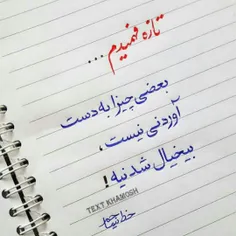 تازه فهمیدم ...
بعضی چیزا به دست
آوردنی نیست ،
بیخیال شدنیه !
TEXT_KHAMOSH